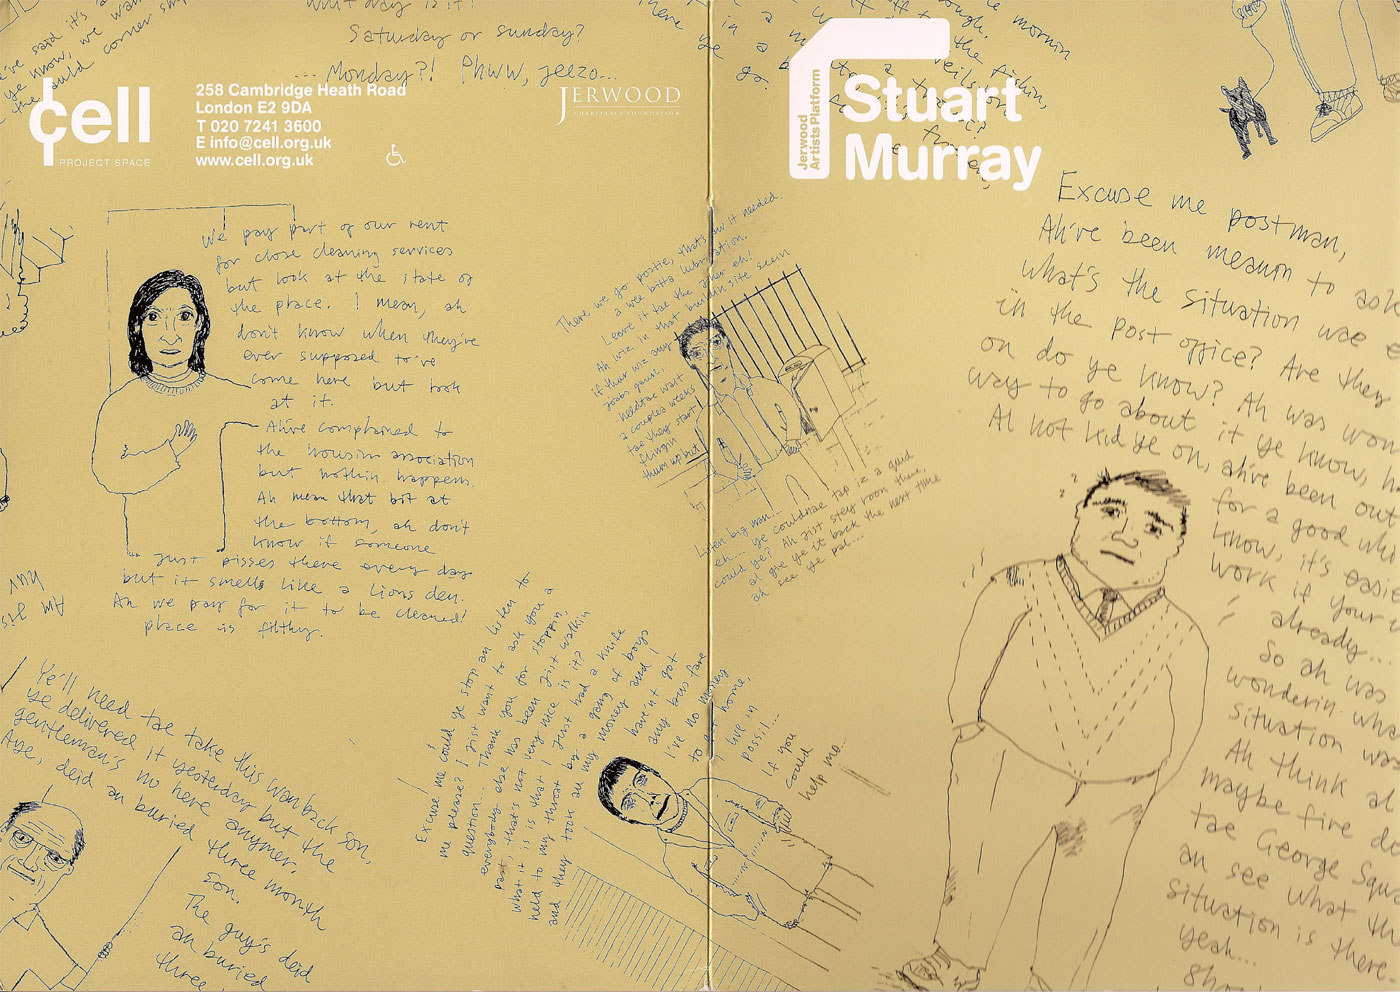 What day is it?
Saturday or Sunday?
... Monday?! Phww, jeezo...
cell
PROJECT SPACE
258 Cambridge Heath Road
London E2 9DA
T 020 7241 3600
E info@cell.org.uk
www.cell.org.uk
JERWOOD
CHARITABLE FOUNDATION
We pay part of our rent
for close cleaning services
but look at the state of
the place. I mean, ah
don't know when they're
ever supposed to've
come here but look
at it.
Ah've complained to
the housin association
but nothin happens.
Ah mean that bit at
the bottom, ah don't
know if someone
just pisses there every day
but it smells like a lions den.
An we pay for it to be cleaned!
place is filthy.
Ye'll need tae take this wan back son,
ye delivered it yesterday but the
gentleman's no here anymer.
Aye, deid an buried three month
son.
The guy's deid
an buried
three
There we go postie, that's aw it needed
a wee bitta lubrication.
Leave it tae the
Ah wiz in that buildin site seein
if thur wiz any
joabs gaun.
needtae wait
a couplea weeks
tae they start
flingin
them up but
Listen big man...
eh... ye couldnae tap iz a quid
could ye? Ah jist stey roon there,
al gie ye it back the next time
ah see ye pal...
Excuse me could ye stop an listen to
me please? I jist want to ask you a
question... Thank you for stoppin,
everybody else has been jist walkin
past, that's not very nice is it?
what it is is that I just had a knife
held to my throat by a gang of boys
and they took an my money and I
haven't got
any bus fare
I've no money
to get home,
live in
possil...
If you
could
help me...
Jerwood
Artists Platform
Stuart
Murray
Excuse me postman,
Ah've been meanin to ask
what's the situation wae
in the post office? Are they
on do ye know? Ah was
way to go about it ye know,
Al not kid ye on, ah've been out
for a good
know, it's easie
work if your
already...
So ah was
wonderin what
situation was
Ah think al
maybe fire
tae George Squa
an see what th
situation is there.
yeah...